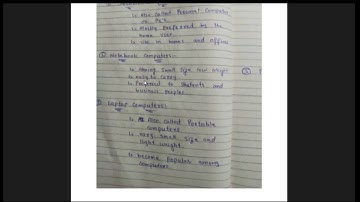 ↳ Also called Personal Computer
or P.C.
↳ Mostly preferred by the
home user.
↳ Use in homes and offices
② Notebook Computers:-
↳ Having Small Size, low weight
↳ Easy to carry
↳ Preferred to Students and
business peoples
③ Laptop Computers:-
↳ Also called Portable
computers
↳ Very small size and
light weight
↳ become Popular among
computers